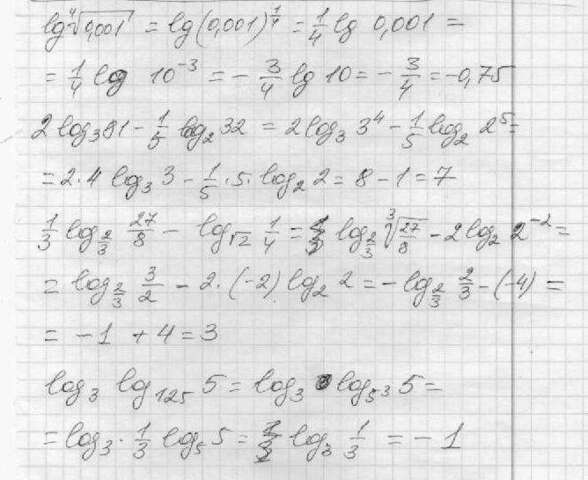 lg ⁴√0,001 = lg(0,001)^(1/4) = 1/4 lg 0,001 =
= 1/4 log 10⁻³ = - 3/4 lg 10 = - 3/4 = -0,75
2 log₃ 81 - 1/5 log₂ 32 = 2 log₃ 3⁴ - 1/5 log₂ 2⁵ =
= 2·4 log₃ 3 - 1/5 · 5 · log₂ 2 = 8 - 1 = 7
1/3 log_(2/3) 27/8 - log_√2 1/4 = log_(2/3) ³√(27/8) - 2 log₂ 2⁻² =
= log_(2/3) 3/2 - 2·(-2) log₂ 2 = - log_(2/3) 2/3 - (-4) =
= -1 + 4 = 3
log₃ log₁₂₅ 5 = log₃ log_5³ 5 =
= log₃ · 1/3 log₅ 5 = log₃ 1/3 = -1